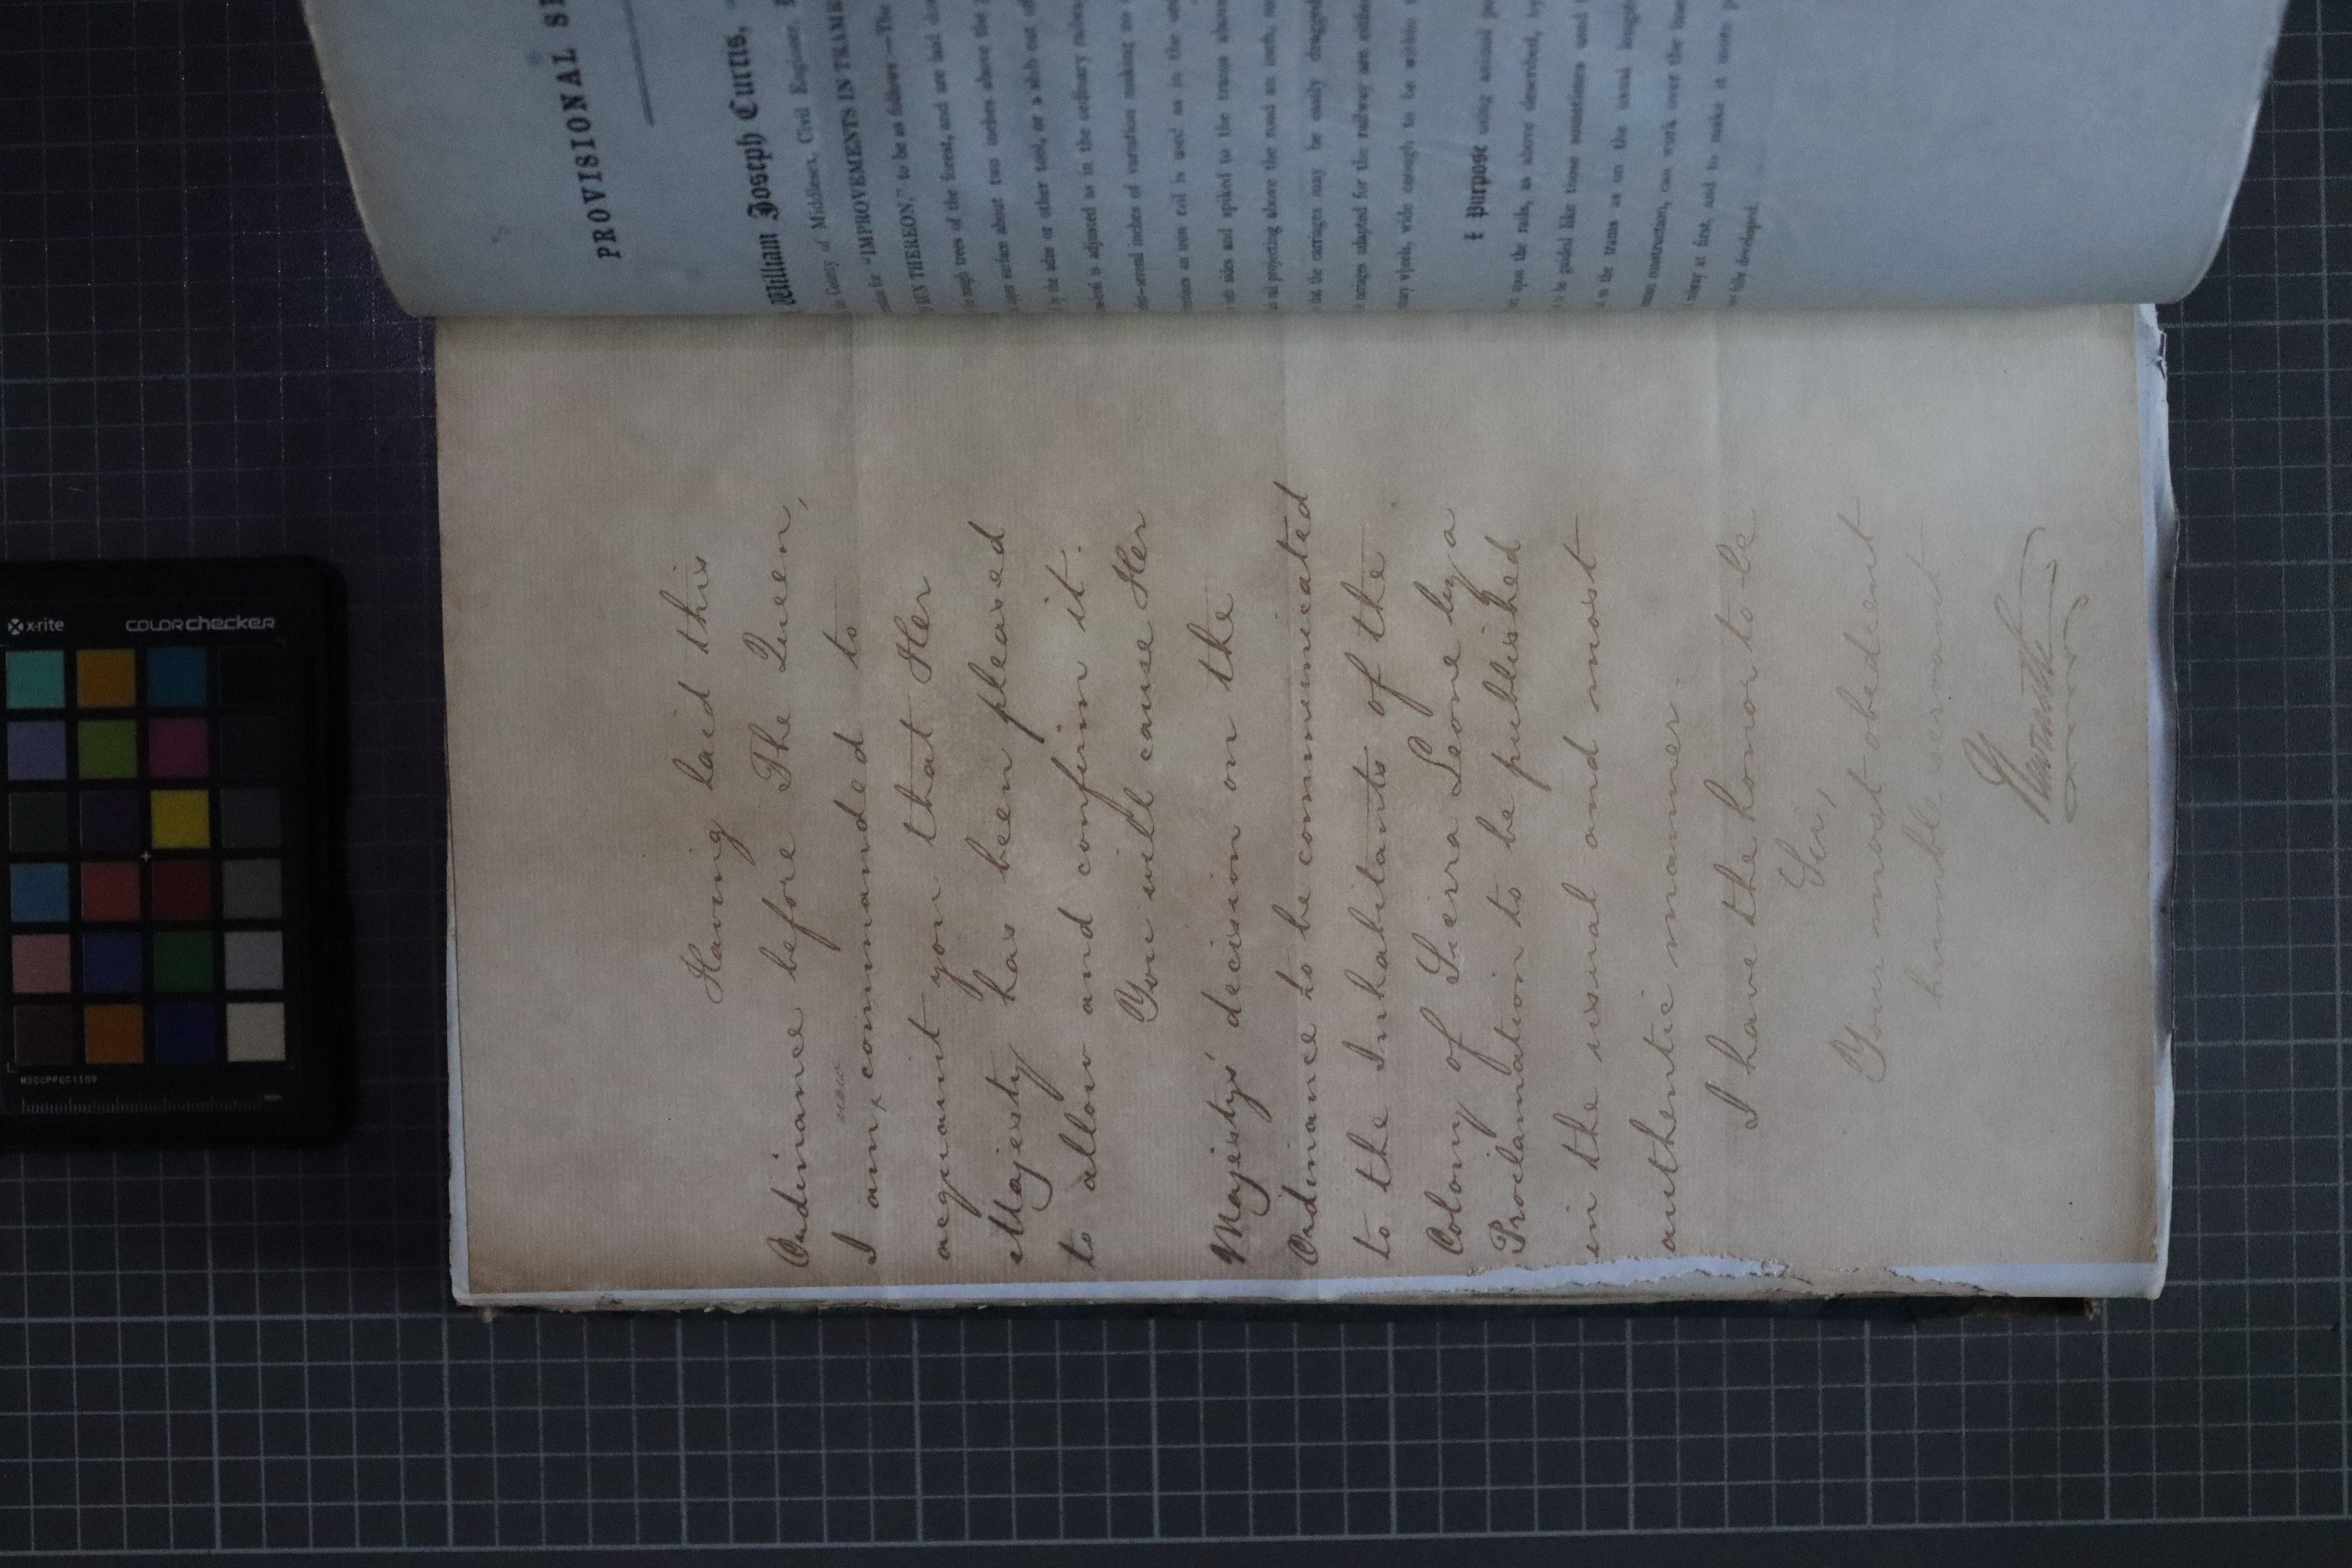 PROVISIONAL
William Joseph Curtis,
County of Middlesex, Civil Engineer,
for "IMPROVEMENTS IN
THEREON," to be as follows:—The
rough trees of the forest, and are laid
surface about two inches above the
by the adze or other tool, or a slab cut
is adjusted as in the ordinary
several inches of variation making no
an iron rail is used as in the
sides and spiked to the trams
projecting above the road an inch,
the carriages may be easily dragged
carriages adapted for the railway are either
wheels, wide enough to be within
Purpose using animal
upon the rails, as above described, by
be guided like those sometimes used
to the trams as on the usual
construction, can work over the
at first, and to make it more
developed.
Having laid this
Ordinance before The Queen,
now
I am x commanded to
acquaint you that Her
Majesty has been pleased
to allow and confirm it.
You will cause Her
Majesty's decision on the
Ordinance to be communicated
to the Inhabitants of the
Colony of Sierra Leone by a
Proclamation to be published
in the usual and most
authentic manner.
I have the honor to be
Sir,
Your most obedient
humble servant
x-rite colorchecker
MSCCPPCC1109